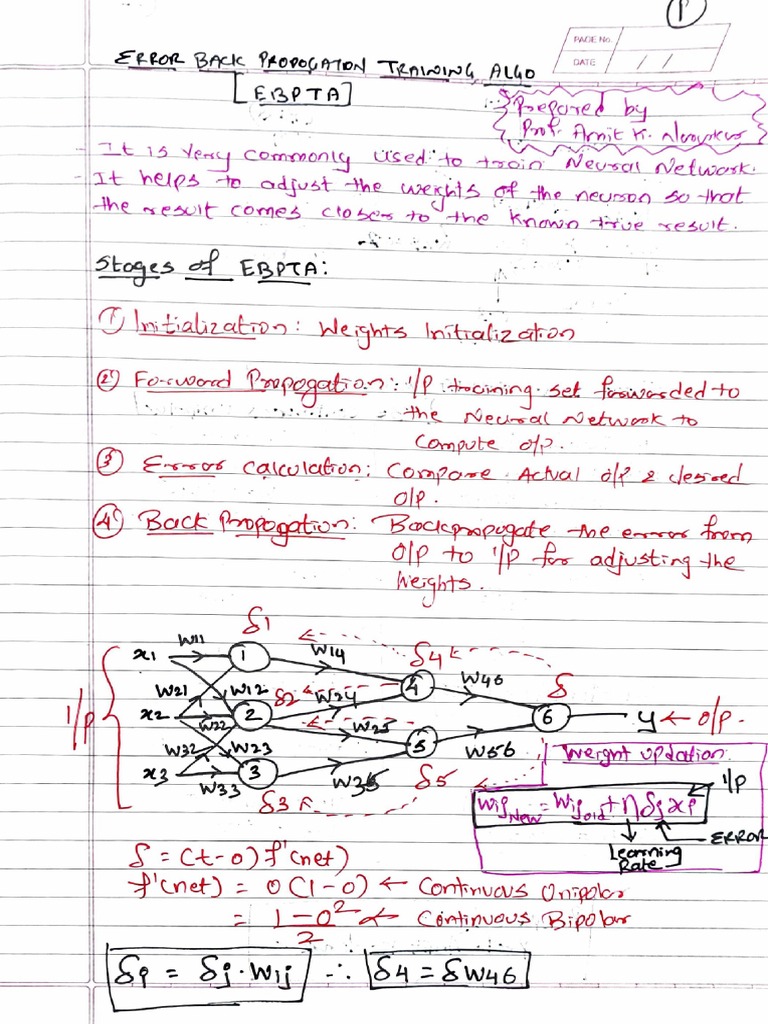 1
PAGE No.
DATE / /
ERROR BACK PROPOGATION TRAINING ALGO
[EBPTA]
Prepared by
Prof. Amit K.
It is very commonly used to train Neural Network.
It helps to adjust the weights of the neuron so that
the result comes closer to the known true result.
Stages of EBPTA:
① Initialization: Weights Initialization
② Forward Propogation: I/P training set forwarded to
the Neural Network to
Compute O/P.
③ Error Calculation: Compare Actual O/P & desired
O/P.
④ Back Propogation: Backpropogate the error from
O/P to I/P for adjusting the
Weights.
δ1
x1 W11 1 W14 δ4 W46
W21 W12 δ2 W24 4 δ
I/P x2 W22 2 W25 6 y ← O/P.
W32 W23 5 W56
x3 W33 3 W35 δ5
δ3
Weight updation:
Wij New = Wij old + η δj xi
I/P
ERROR
Learning
Rate
δ = (t-o) f'(net)
f'(net) = o(1-o) ← Continuous Unipolar
= 1-o²/2 ← Continuous Bipolar
δi = δj · Wij ∴ δ4 = δW46